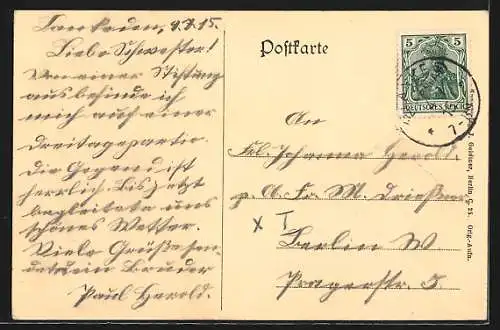 9.7.15.
Liebe Schwester!
Von einer Stiftung
aus befinde ich
mich auf einer
Dreitagepartie.
Die Gegend ist
herrlich. Bis jetzt
begleitete uns
schönes Wetter.
Viele Grüße sen-
det ein Bruder
Paul Herold.
Postkarte
5 5
DEUTSCHES REICH
An
Frl. Johanna Herold.
p. A. Fr. M.
x T
Berlin W
Pragerstr. 5.
Goldiner, Berlin, C. 25. Orig.-Aufn.